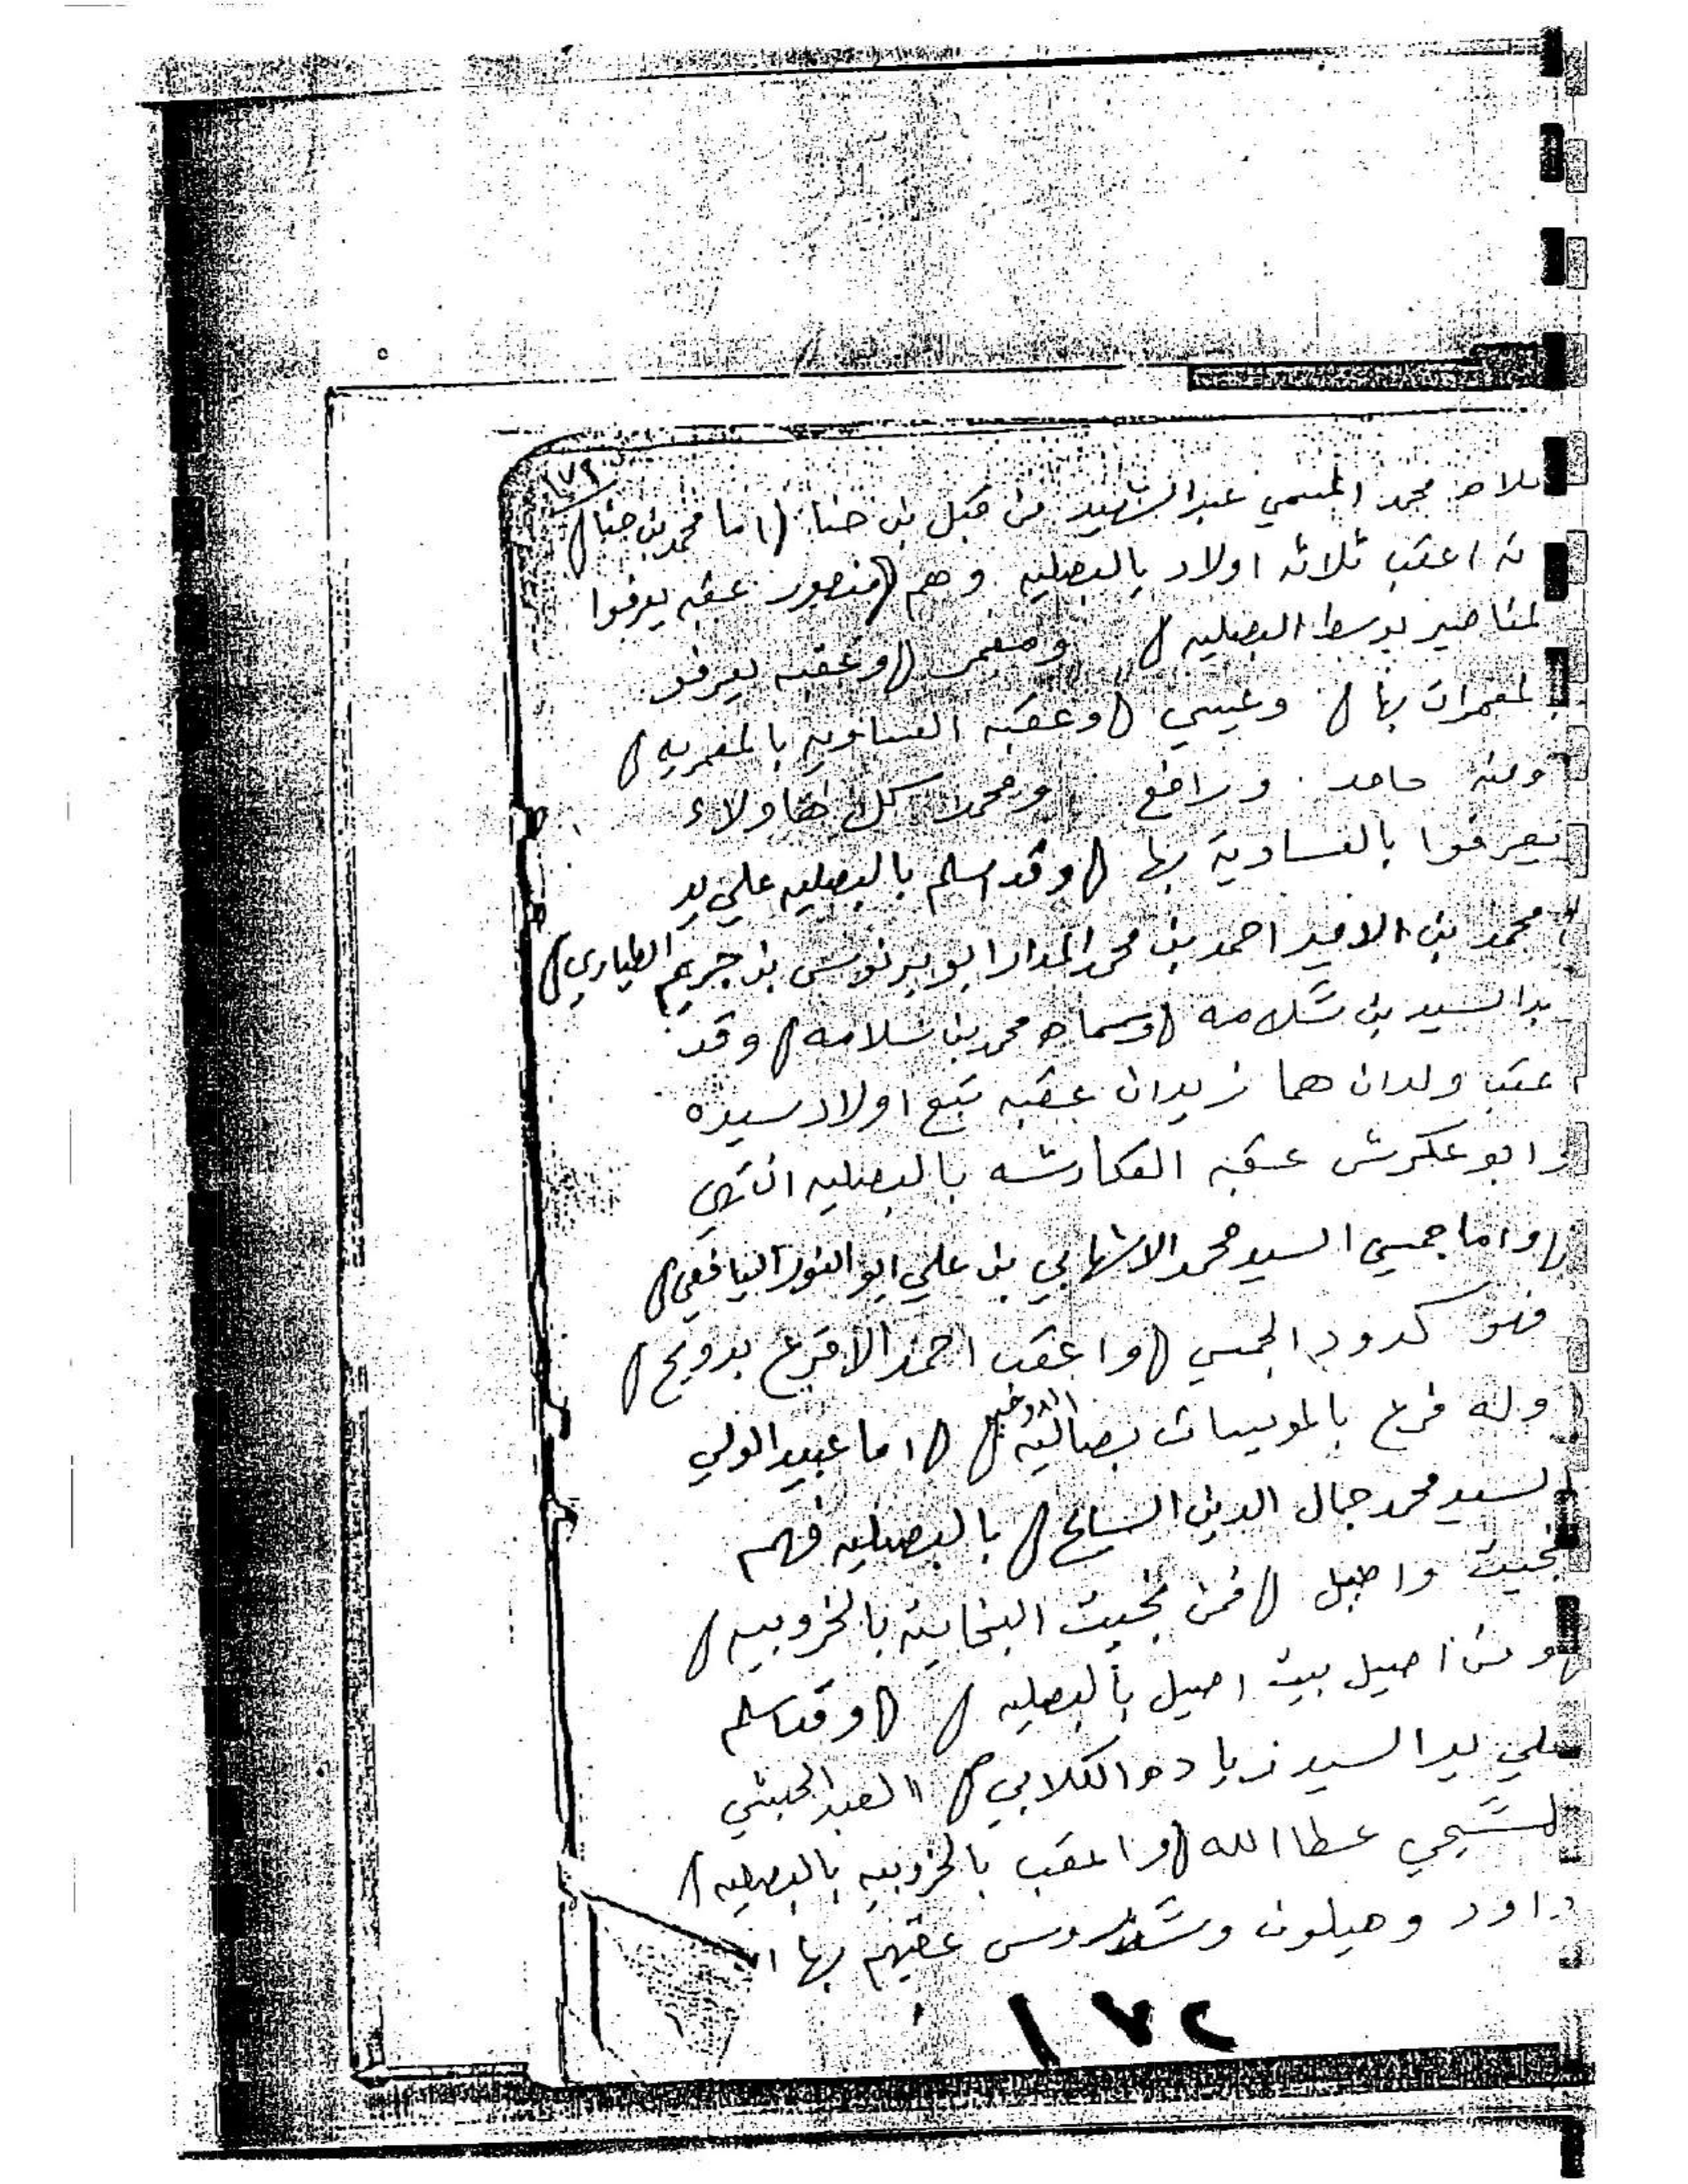 ١٧٩
محمد المسمي عبد الشهيد من قبل بن حنا (اما محمد بن حنا)
اعقب ثلاثه اولاد بالبصليه وهم (منصور عقبه يعرفوا
لمناصير بوسط البصليه) ومعمر (وعقبه يعرفو
لمعمرات بها) وعيسي (وعقبه العساويه بالمعمريه)
ومنه حامد ورافع ومحمد كل هاولاء
يعرفوا بالعساوية بها (وقد اسلم بالبصليه علي يد
محمد بن الامير احمد بن محمد المدار ابو برنوس بن جريم الطياري)
بد السيد بن سلامه (وسماه محمد بن سلامه) وقد
عقب ولدان هما زيدان عقبه تبع اولاد سيده
وابو عكرش عقبه العكارشه بالبصليه انتهي
(واما جمسي السيد محمد الاشهابي بن علي ابو النور اليافعي)
فهو كدود الجمسي (واعقب احمد الاقرع بدويح)
وله فرع بالمويسات (اما عبيد الولي
السيد محمد جمال الدين السايح) بالبصليه فهم
بخيت واصيل (فمن بخيت البخايته بالخروبيه)
ومن اصيل بيت اصيل بالبصليه) (وقد اسلم
علي يد السيد زياده الكلابي) العبد الحبشي
عطا الله (واعقب بالخروبيه بالبصليه)
داود وهيلون عقبهم بها
١٧٢